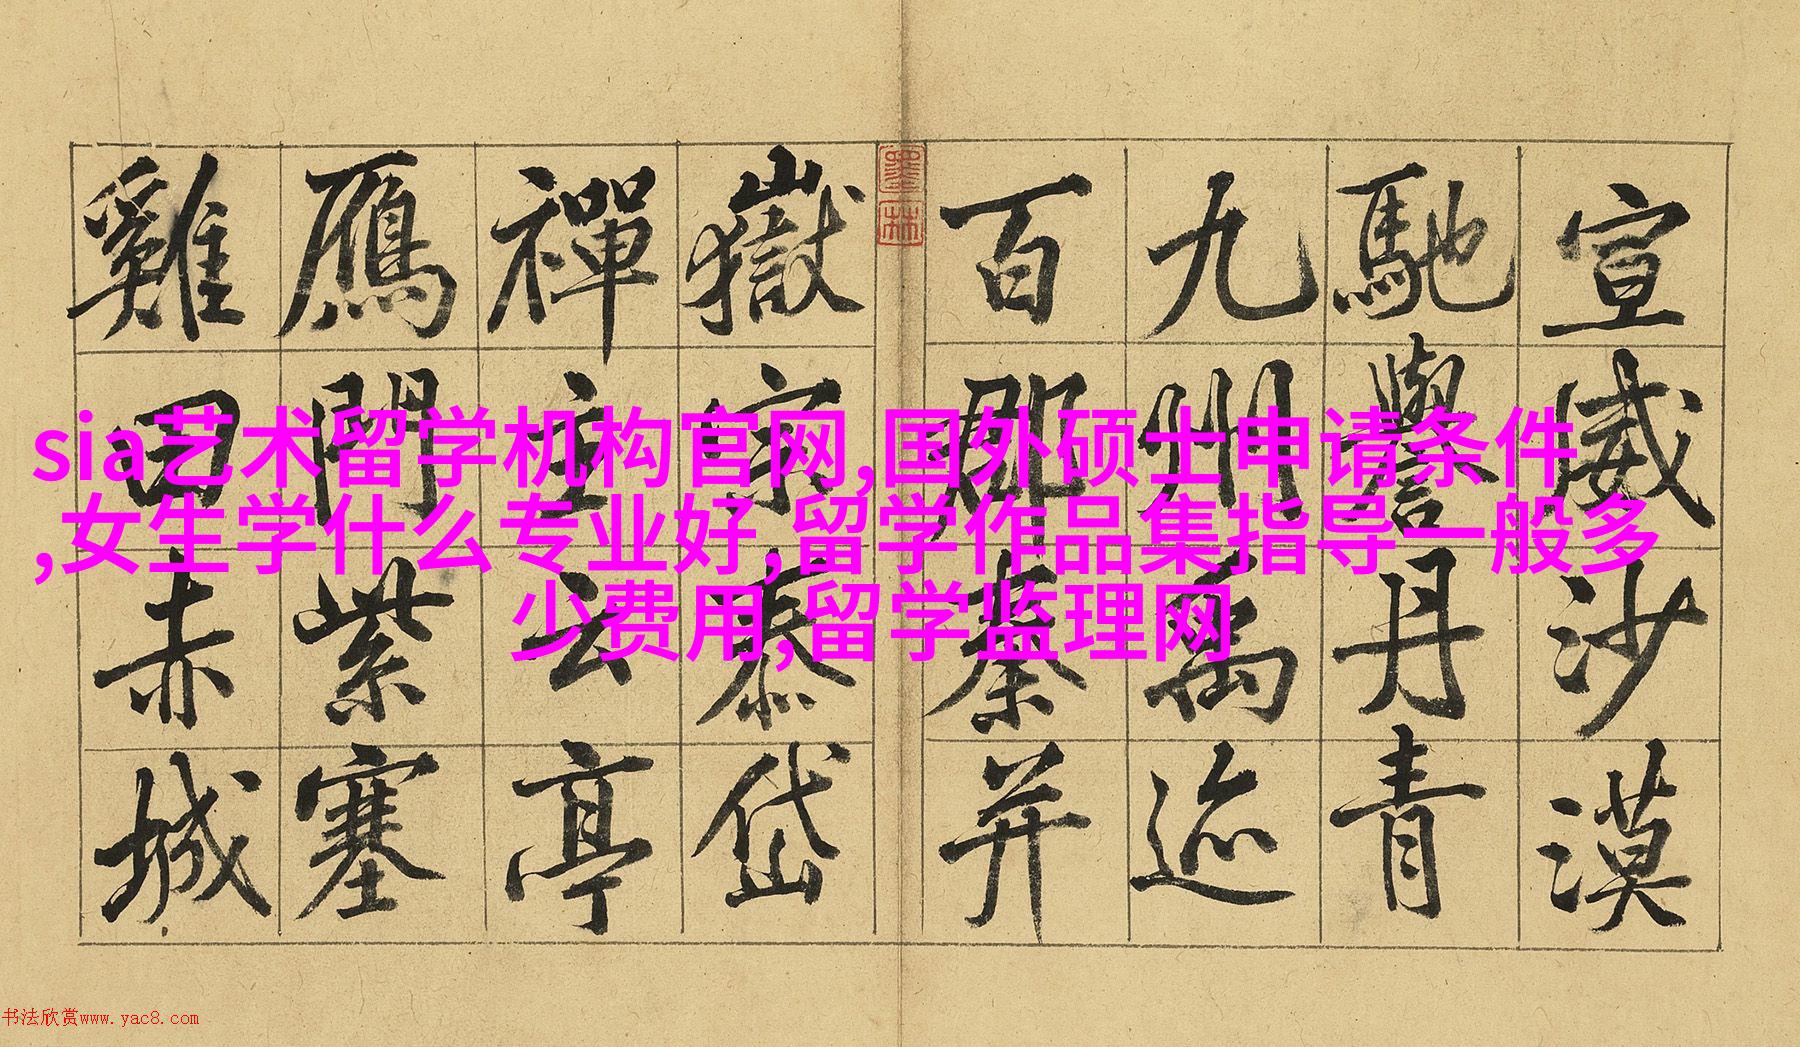 宣威沙漠
馳譽丹青
九州禹迹
百郡秦并
墨林
嶽宗泰岱
禪主云亭
鴈門紫塞
雞田赤城
sia艺术留学机构官网,国外硕士申请条件
,女生学什么专业好,留学作品集指导一般多
少费用,留学监理网
书法欣赏www.yac8.com